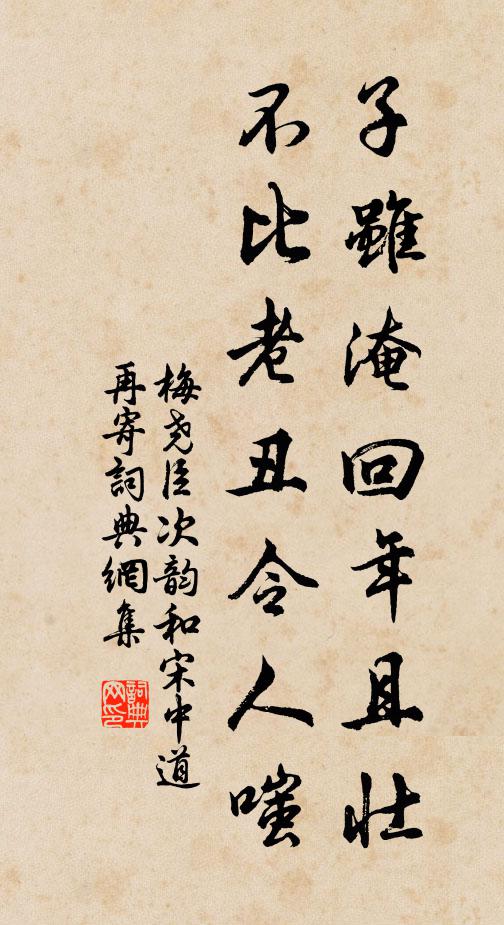 子雖淹回年且壯
不比老丑令人嗤
梅尧臣次韵和宋中道
再寄詞典網集
詞典
网印